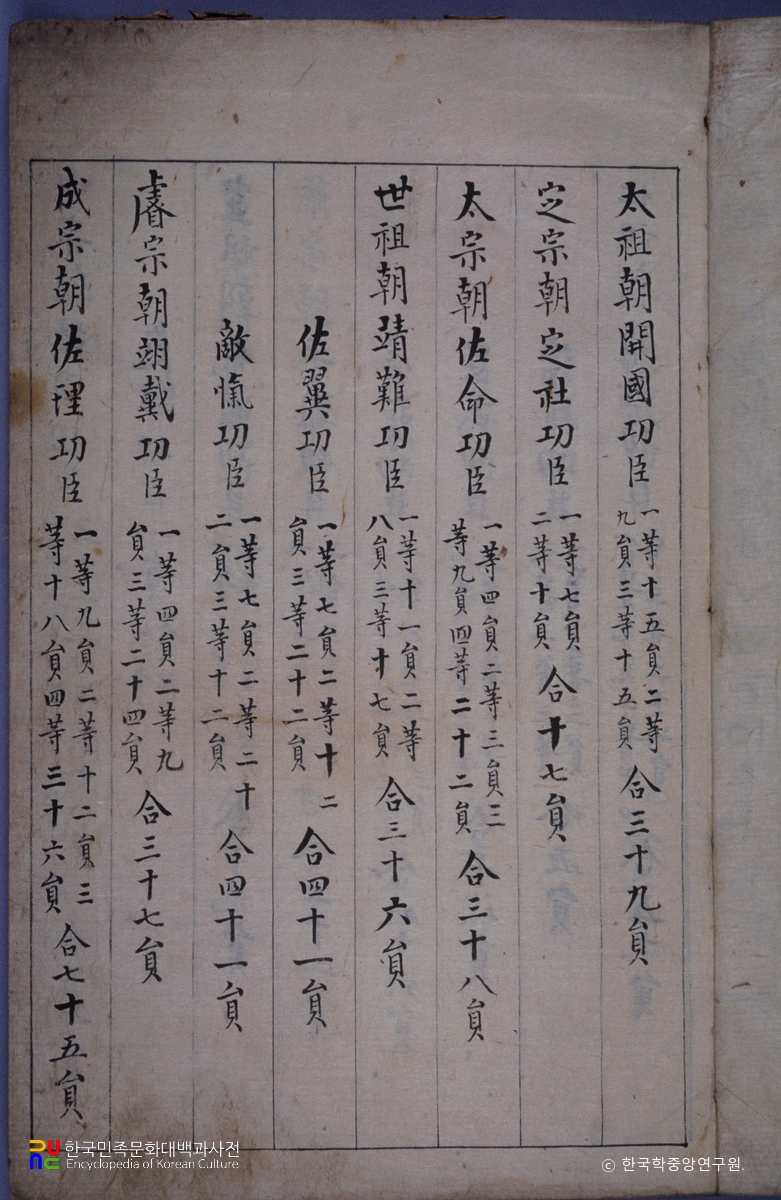 太祖朝開國功臣 一等十五員二等九員三等十五員 合三十九員
定宗朝定社功臣 一等七員二等十員 合十七員
太宗朝佐命功臣 一等四員二等三員三等九員四等二十二員 合三十八員
世祖朝靖難功臣 一等十一員二等八員三等十七員 合三十六員
佐翼功臣 一等七員二等十二員三等二十二員 合四十一員
敵愾功臣 一等七員二等二十二員三等十二員 合四十一員
睿宗朝翊戴功臣 一等四員二等九員三等二十四員 合三十七員
成宗朝佐理功臣 一等九員二等十二員三等十八員四等三十六員 合七十五員
한국민족문화대백과사전
Encyclopedia of Korean Culture
ⓒ 한국학중앙연구원.